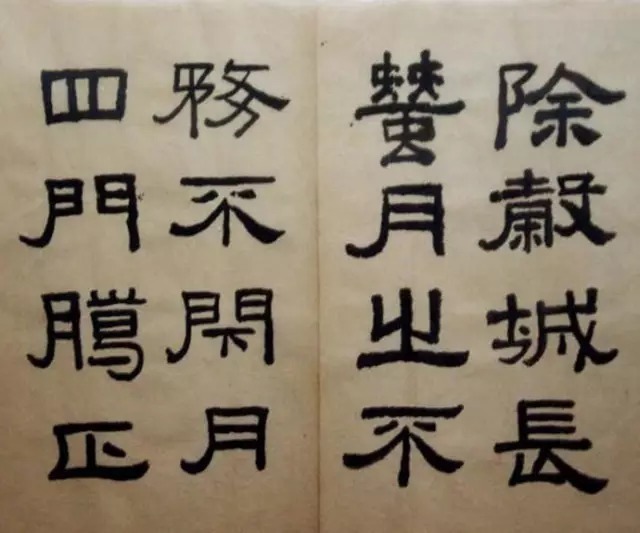 除穀城長
蠶月之不
務不閉月
四門騰正